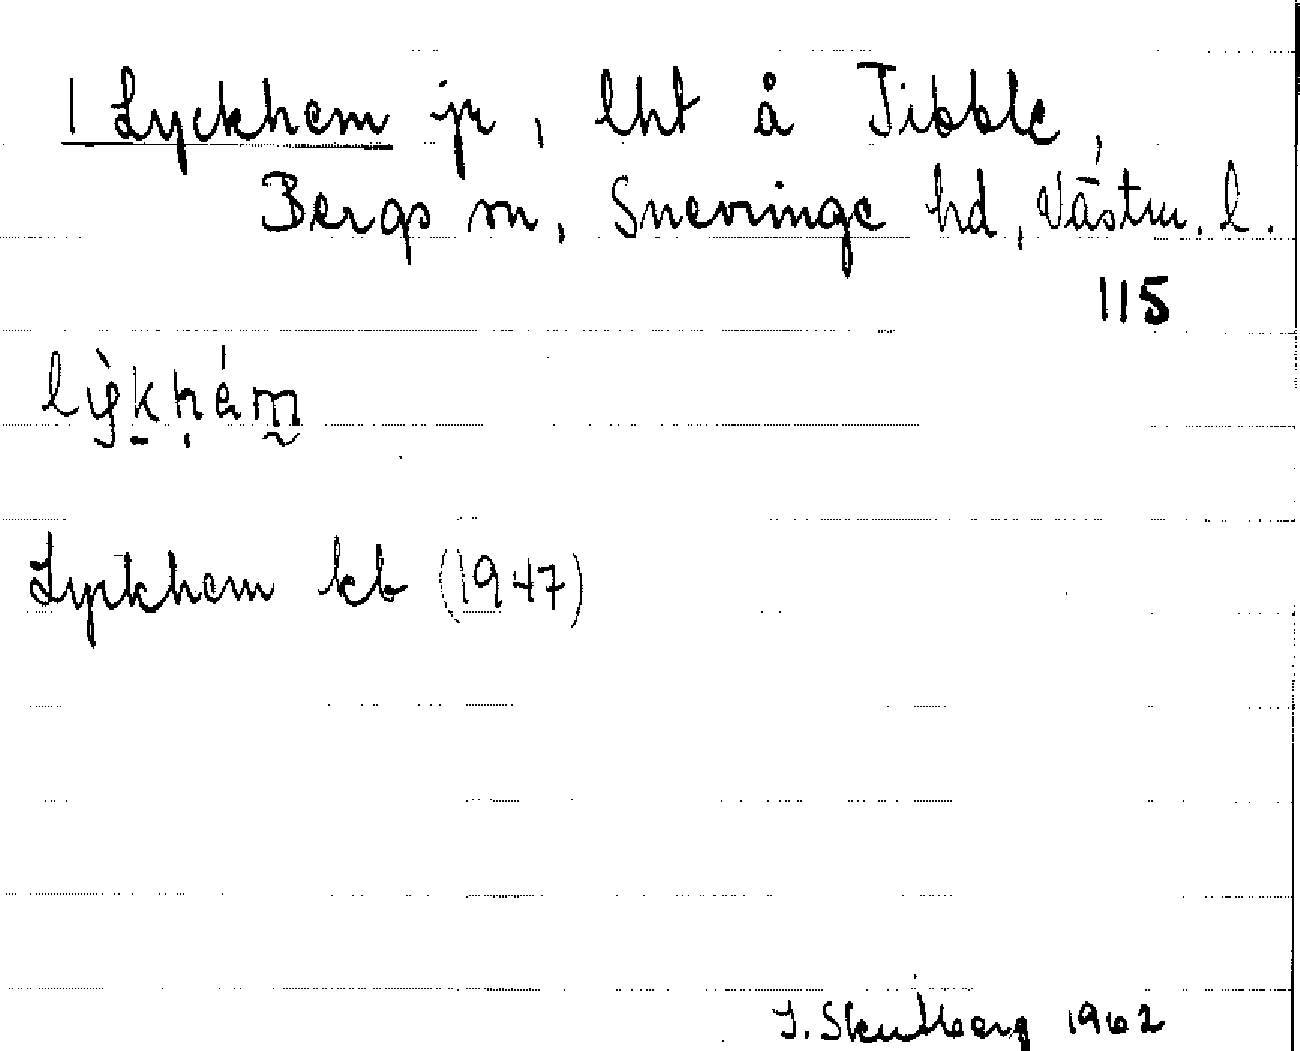 1 Lyckhem jr, lht å Tibble,
Bergs sn, Snevringe hd, Västm. l.
115
lỳkhém
Lyckhem kb (1947)
1962